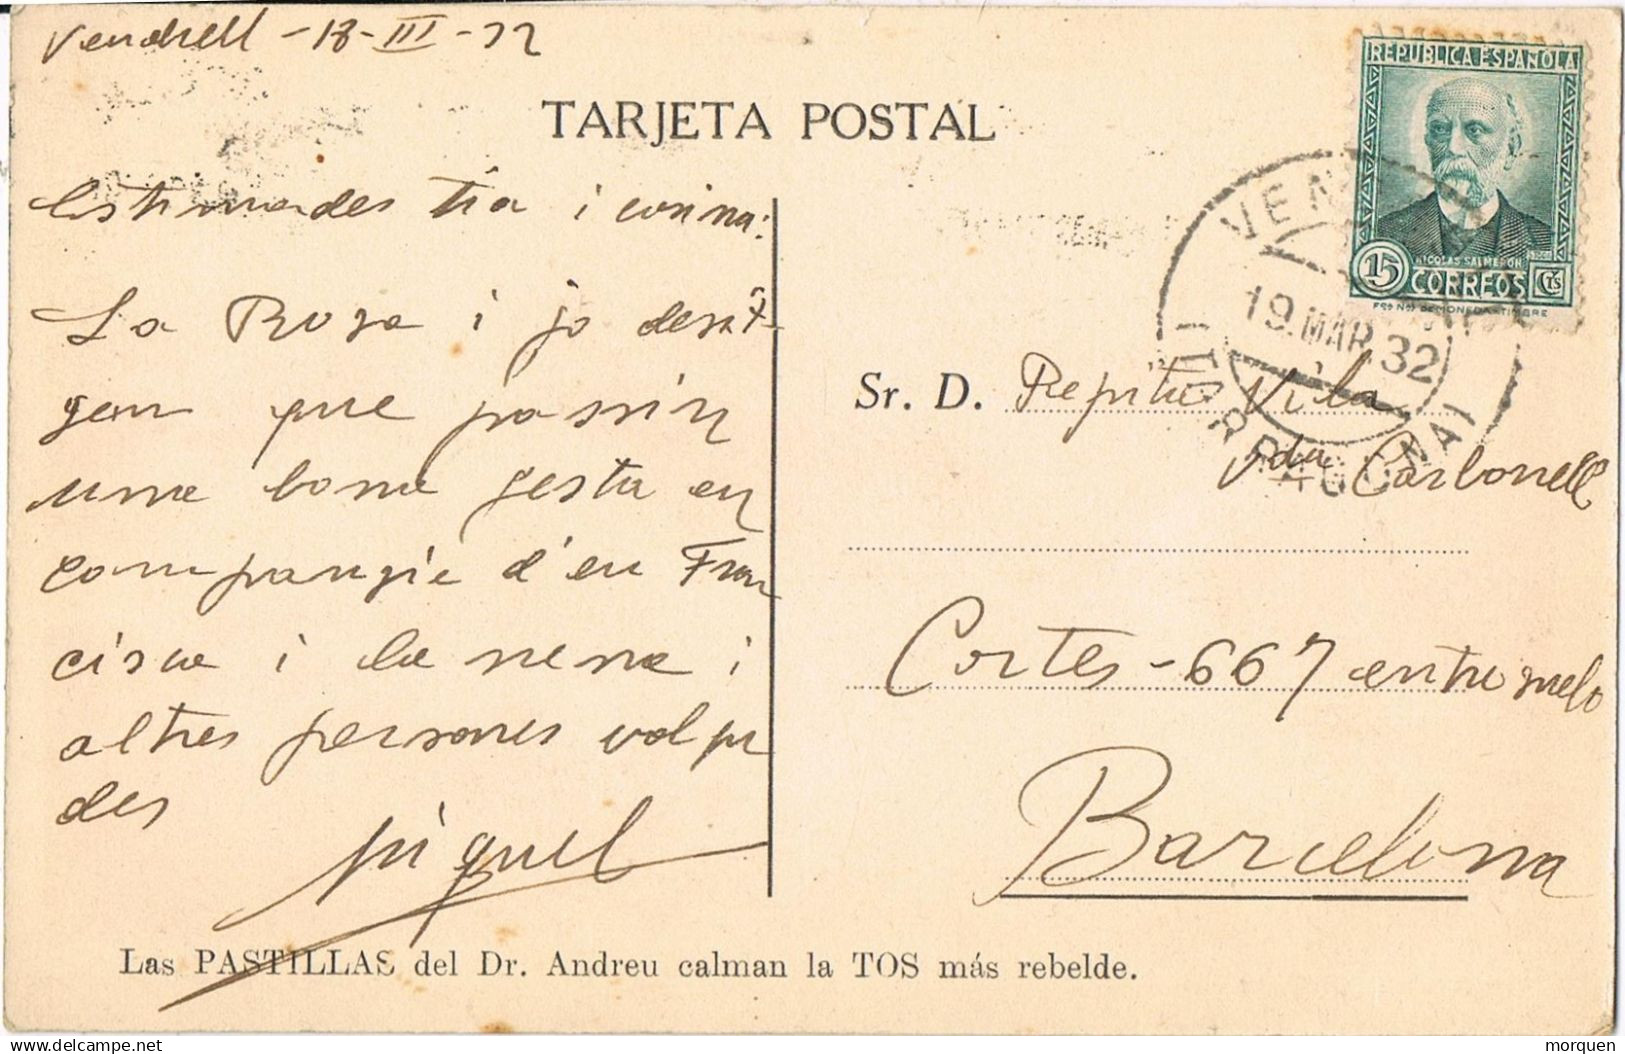 Vendrell - 18 - III - 32
TARJETA POSTAL
REPUBLICA ESPAÑOLA
NICOLAS SALMERON
15 CORREOS Cts
19.MAR.32
Estimades tia i cosina:
La Rosa i jo desit-
gem que passin
una bona festa en
companyia d'en Fran
cisca i la nena i
altres persones volgu
des
Miquel
Sr. D. Pepita Vila
Vda Carbonell
Cortes - 667 entresuelo
Barcelona
Las PASTILLAS del Dr. Andreu calman la TOS más rebelde.
morquen